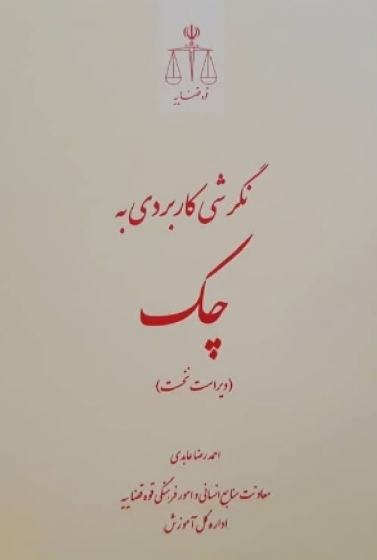 قوه قضاییه
نگرشی کاربردی به
چک
(ویراست نخست)
احمدرضا عابدی
معاونت منابع انسانی و امور فرهنگی قوه قضاییه
اداره کل آموزش